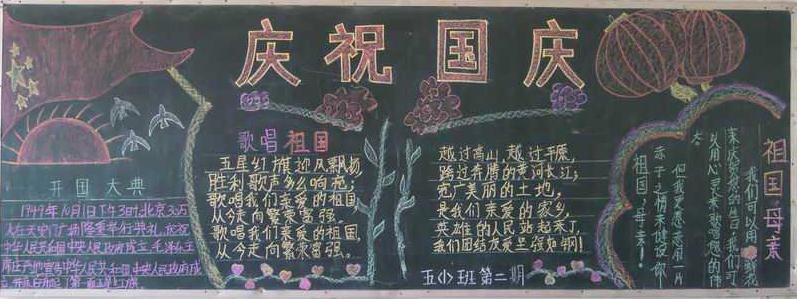 庆祝国庆
开国大典
1949年10月1日下午3时,北京30万
人在天安门广场隆重举行典礼,庆祝
中华人民共和国中央人民政府成立,毛泽东主
席庄严地宣告中华人民共和国中央人民政府成
歌唱祖国
五星红旗迎风飘扬,
胜利歌声多么响亮;
歌唱我们亲爱的祖国,
从今走向繁荣富强。
歌唱我们亲爱的祖国,
从今走向繁荣富强。
越过高山,越过平原,
跨过奔腾的黄河长江;
宽广美丽的土地,
是我们亲爱的家乡,
英雄的人民站起来了,
我们团结友爱坚强如钢!
五(1)班第二期
祖国,母亲
我们可以用鲜花
来庆贺您的生日,我们可
以用心灵来歌唱您的伟
大
但我更愿意用一片
赤子之情来建设你
祖国,母亲!